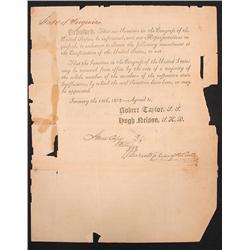 State of Virginia
Resolved, That our Senators in the Congress of the
United States, be instructed, and our Representatives re-
quested, to endeavor to obtain the following amendment to the
Constitution of the United States, to wit:
That the Senators in the Congress of the United States
may be removed from office by the vote of a majority of
the whole number of the members of the respective state
legislatures, by which the said Senators have been, or may
be appointed.
January 1812—Agreed to,
Robert Taylor, S. S.
Hugh Nelson, S. H. D.